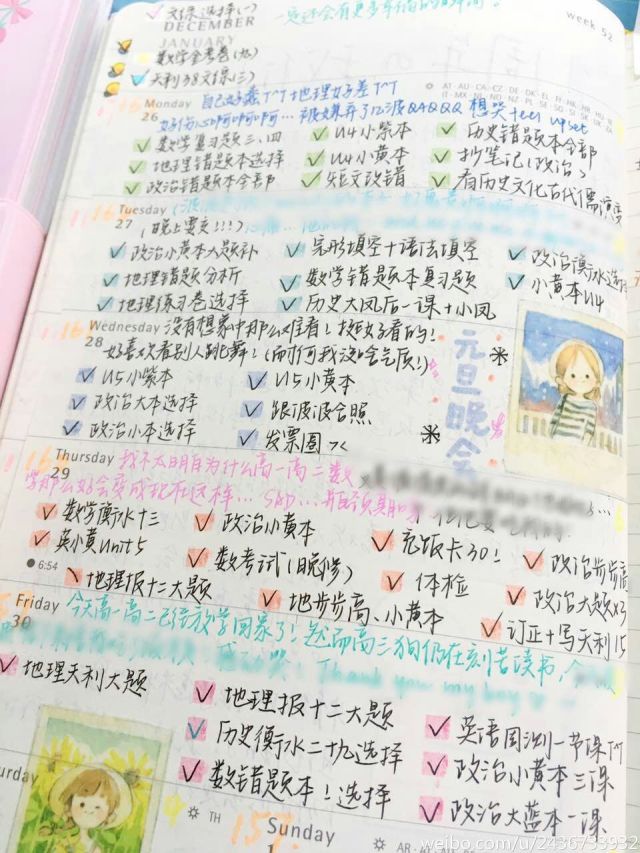 文综选择(一)
一定还会有更多幸福的时间!
DECEMBER
week 52
JANUARY
数学金考卷(九)
天利38文综(三)
AT·AU·CA·CZ·DE·DK
Monday 自己好蠢T^T地理好差T^T
26 好伤心啊啊啊… 被嫌弃了 QAQQQ 想哭 feel upset
数学复习题三、四 U4小紫本 历史错题本全部
地理错题本选择 U4小黄本 抄笔记(政治)
政治错题本全部 短文改错 看历史文化古代儒演变
Tuesday
27 (晚上要交!!!)
政治小黄本大题补 完形填空+语法填空 政治衡水选择
地理错题分析 数学错题本复习题 小黄本U4
地理练习卷选择 历史大凤后一课+小凤
Wednesday 没有想象中那么难看!挺好看的!
28 好喜欢看别人跳舞!(而何我没啥气质!)
元旦晚会
U5小紫本 U5小黄本
政治大本选择 跟波波合照
政治小本选择 发票圈
Thursday 我不太明白为什么高一高二数
29 学那么好会变成现在这样… sad…
数学衡水十三 政治小黄本 充饭卡30! 政治步步高
英小黄Unit5 数考试(晚修) 体检 政治大题
6:54
地理报十二大题 地步步高、小黄本 订正+写天利15
Friday 今天高一高二已经放学回家了!然而高三狗仍在刻苦读书,
30 Thank you my boy
地理天利大题 地理报十二大题 英语周测一节课T^T
历史衡水二十九选择 政治小黄本三课
数错题本!选择 政治大蓝本一课
TH
15T
Sunday
weibo.com/u/2436733932